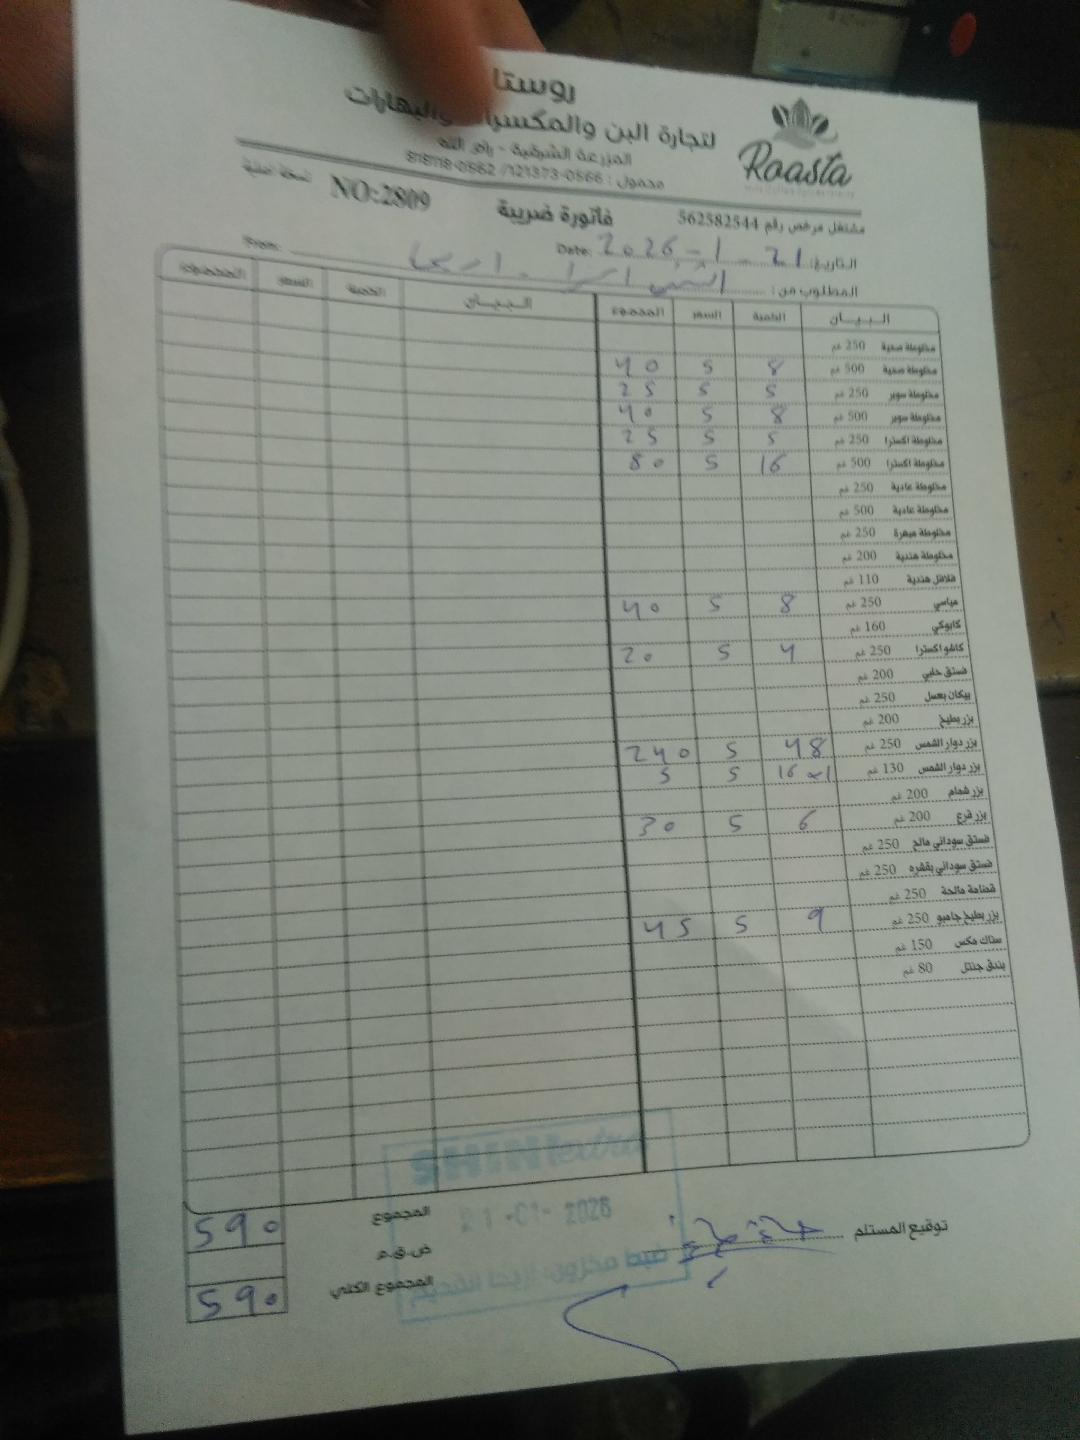 روستا
لتجارة البن والمكسرات والبهارات
المزرعة الشرقية - رام الله
محمول : 0566-121373 / 0562-818118
Roasta
مشتغل مرخص رقم 562582544
فاتورة ضريبة
NO:2809
نسخة اصلية
التاريخ: 21 - 1 - 2026 Date:
المطلوب من: From:
البيـــان الكمية السعر المجموع البيـــان الكمية السعر المجموع
مخلوطة صحية 250 غم
مخلوطة صحية 500 غم 8 5 40
مخلوطة سوبر 250 غم 5 5 25
مخلوطة سوبر 500 غم 8 5 40
مخلوطة اكسترا 250 غم 5 5 25
مخلوطة اكسترا 500 غم 16 5 80
مخلوطة عادية 250 غم
مخلوطة عادية 500 غم
مخلوطة مبهرة 250 غم
مخلوطة هندية 200 غم
فلافل هندية 110 غم
عباسي 250 غم 8 5 40
كابوكي 160 غم
كاشو اكسترا 250 غم 4 5 20
فستق حلبي 200 غم
بيكان بعسل 250 غم
بزر بطيخ 200 غم
بزر دوار الشمس 250 غم 48 5 240
بزر دوار الشمس 130 غم 16 5 5
بزر شمام 200 غم
بزر قرع 200 غم 6 5 30
فستق سوداني مالح 250 غم
فستق سوداني بقشره 250 غم
قضامة مالحة 250 غم
بزر بطيخ جامبو 250 غم 9 5 45
سناك مكس 150 غم
بندق جنتل 80 غم
المجموع 590
ض.ق.م
المجموع الكلي 590
توقيع المستلم
SHINI extra
21-01-2026
ضبط مخزون: اريحا القديم